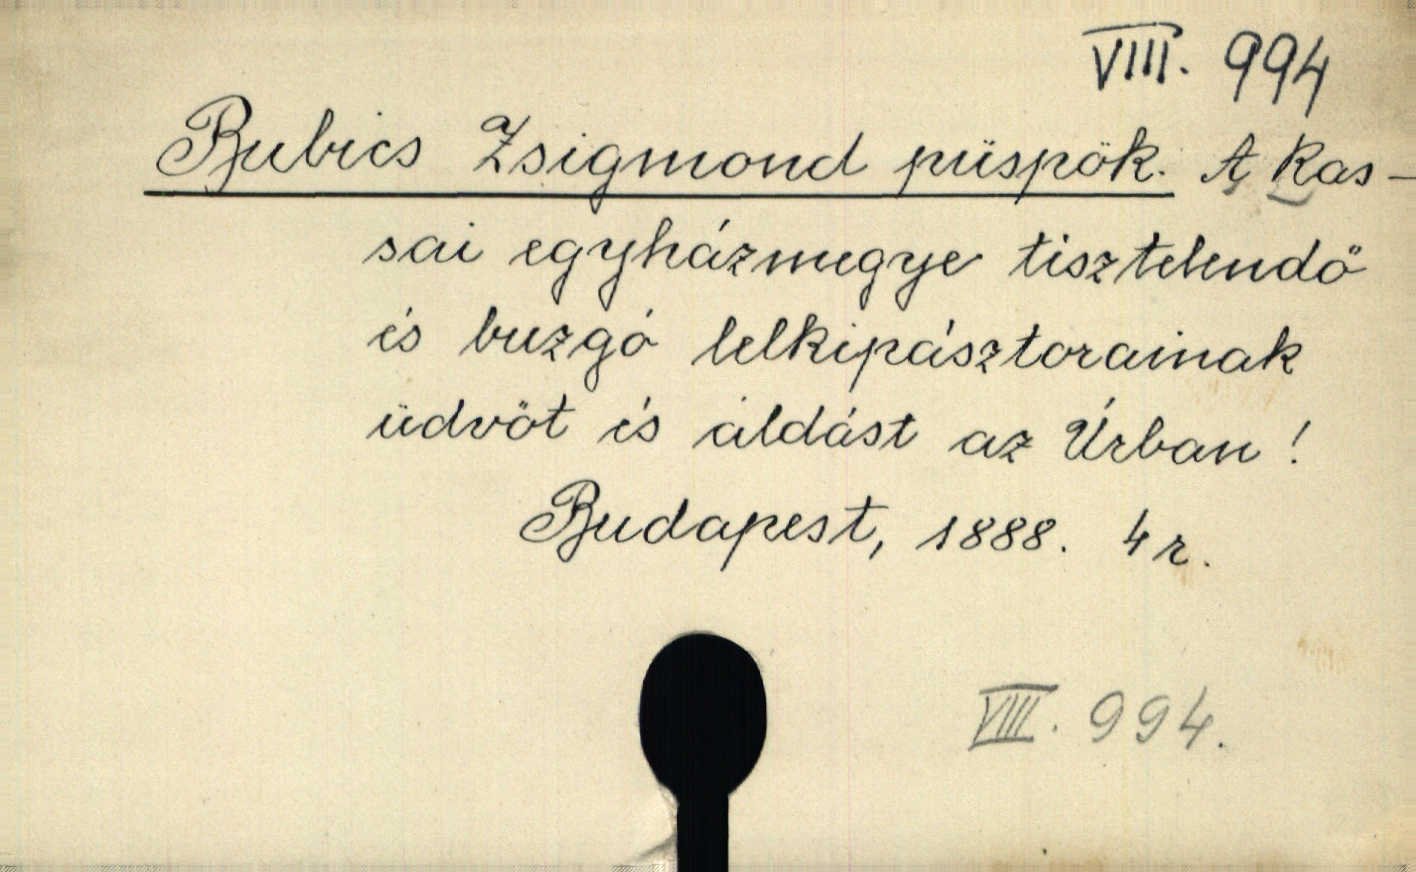 VIII. 994
Bubics Zsigmond püspök. A Kas-
sai egyházmegye tisztelendő
és buzgó lelkipásztorainak
üdvöt és áldást az Úrban!
Budapest, 1888. 4r.
VIII. 994.